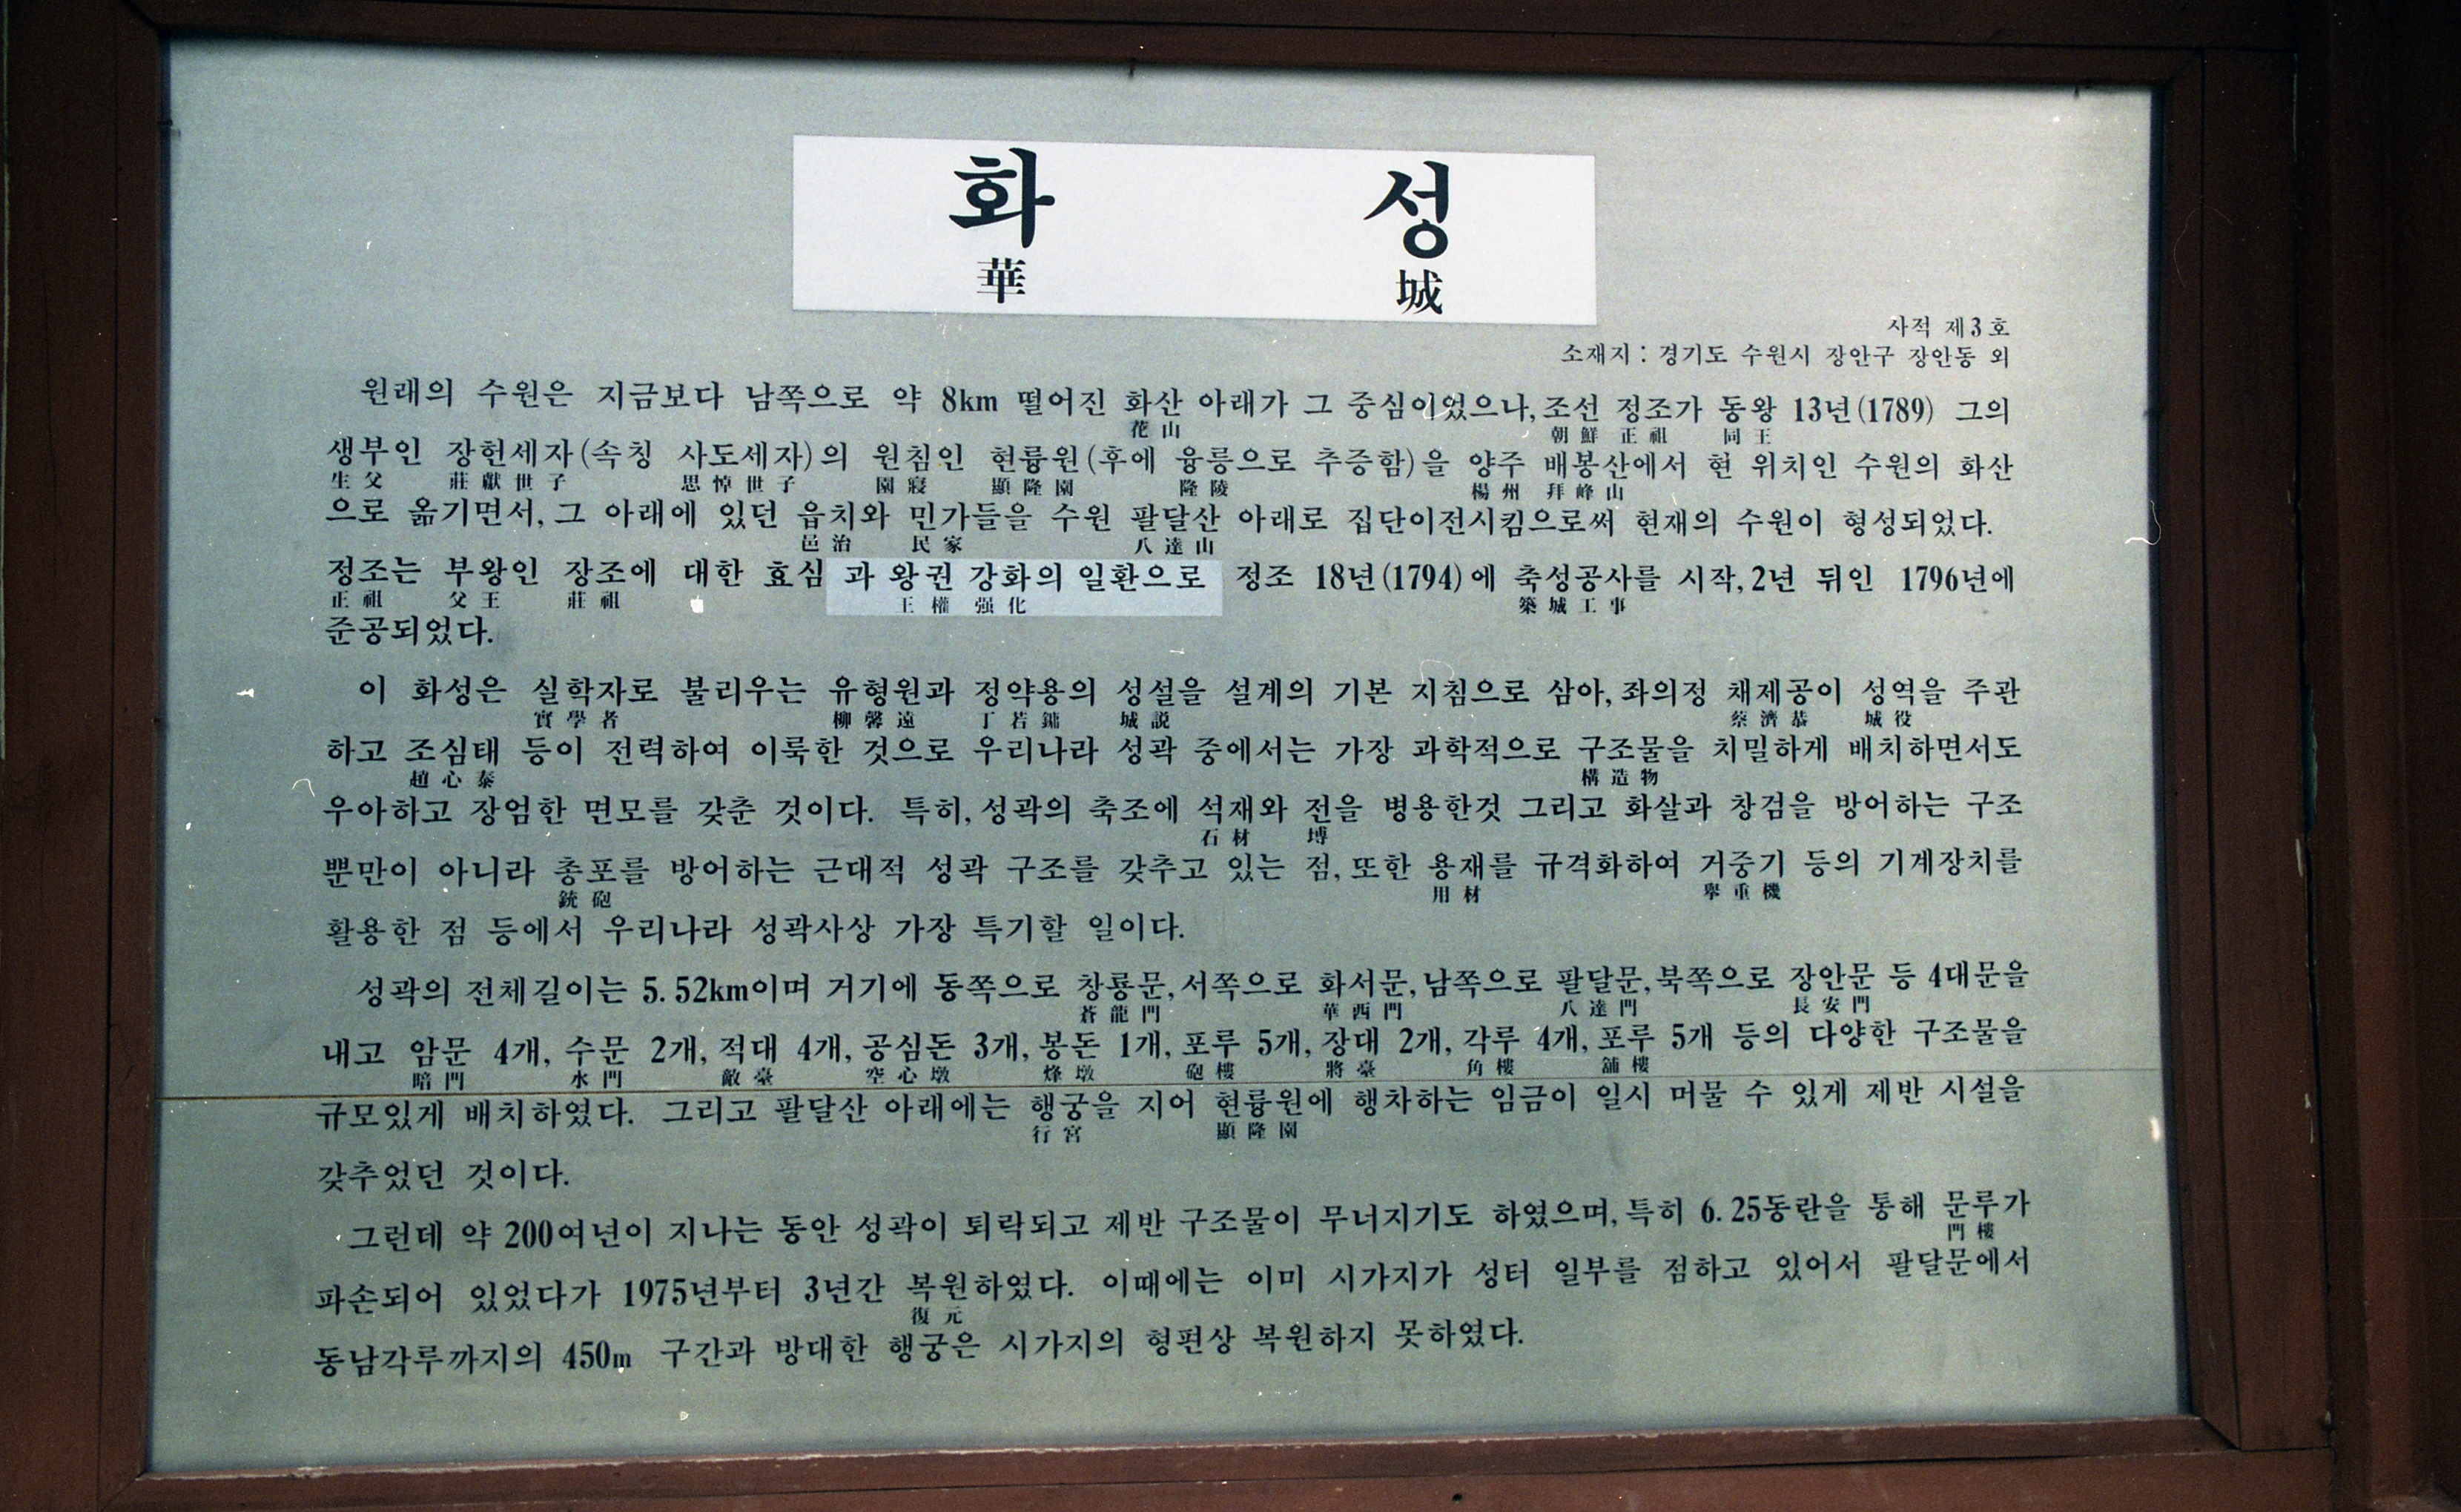 화 성
華 城
사적 제3호
소재지 : 경기도 수원시 장안구 장안동 외
원래의 수원은 지금보다 남쪽으로 약 8km 떨어진 화산 아래가 그 중심이었으나, 조선 정조가 동왕 13년(1789) 그의
花山 朝鮮 正祖 同王
생부인 장헌세자(속칭 사도세자)의 원침인 현륭원(후에 융릉으로 추증함)을 양주 배봉산에서 현 위치인 수원의 화산
生父 莊獻世子 思悼世子 園寢 顯隆園 隆陵 楊州 拜峰山
으로 옮기면서, 그 아래에 있던 읍치와 민가들을 수원 팔달산 아래로 집단이전시킴으로써 현재의 수원이 형성되었다.
邑治 民家 八達山
정조는 부왕인 장조에 대한 효심과 왕권 강화의 일환으로 정조 18년(1794)에 축성공사를 시작, 2년 뒤인 1796년에
正祖 父王 莊祖 王權 强化 築城工事
준공되었다.
이 화성은 실학자로 불리우는 유형원과 정약용의 성설을 설계의 기본 지침으로 삼아, 좌의정 채제공이 성역을 주관
實學者 柳馨遠 丁若鏞 城説 蔡濟恭 城役
하고 조심태 등이 전력하여 이룩한 것으로 우리나라 성곽 중에서는 가장 과학적으로 구조물을 치밀하게 배치하면서도
趙心泰 構造物
우아하고 장엄한 면모를 갖춘 것이다. 특히, 성곽의 축조에 석재와 전을 병용한것 그리고 화살과 창검을 방어하는 구조
石材 塼
뿐만이 아니라 총포를 방어하는 근대적 성곽 구조를 갖추고 있는 점, 또한 용재를 규격화하여 거중기 등의 기계장치를
銃砲 用材 擧重機
활용한 점 등에서 우리나라 성곽사상 가장 특기할 일이다.
성곽의 전체길이는 5.52km이며 거기에 동쪽으로 창룡문, 서쪽으로 화서문, 남쪽으로 팔달문, 북쪽으로 장안문 등 4대문을
蒼龍門 華西門 八達門 長安門
내고 암문 4개, 수문 2개, 적대 4개, 공심돈 3개, 봉돈 1개, 포루 5개, 장대 2개, 각루 4개, 포루 5개 등의 다양한 구조물을
暗門 水門 敵臺 空心墩 烽墩 砲樓 將臺 角樓 舖樓
규모있게 배치하였다. 그리고 팔달산 아래에는 행궁을 지어 현륭원에 행차하는 임금이 일시 머물 수 있게 제반 시설을
行宮 顯隆園
갖추었던 것이다.
그런데 약 200여년이 지나는 동안 성곽이 퇴락되고 제반 구조물이 무너지기도 하였으며, 특히 6.25동란을 통해 문루가
門樓
파손되어 있었다가 1975년부터 3년간 복원하였다. 이때에는 이미 시가지가 성터 일부를 점하고 있어서 팔달문에서
復元
동남각루까지의 450m 구간과 방대한 행궁은 시가지의 형편상 복원하지 못하였다.